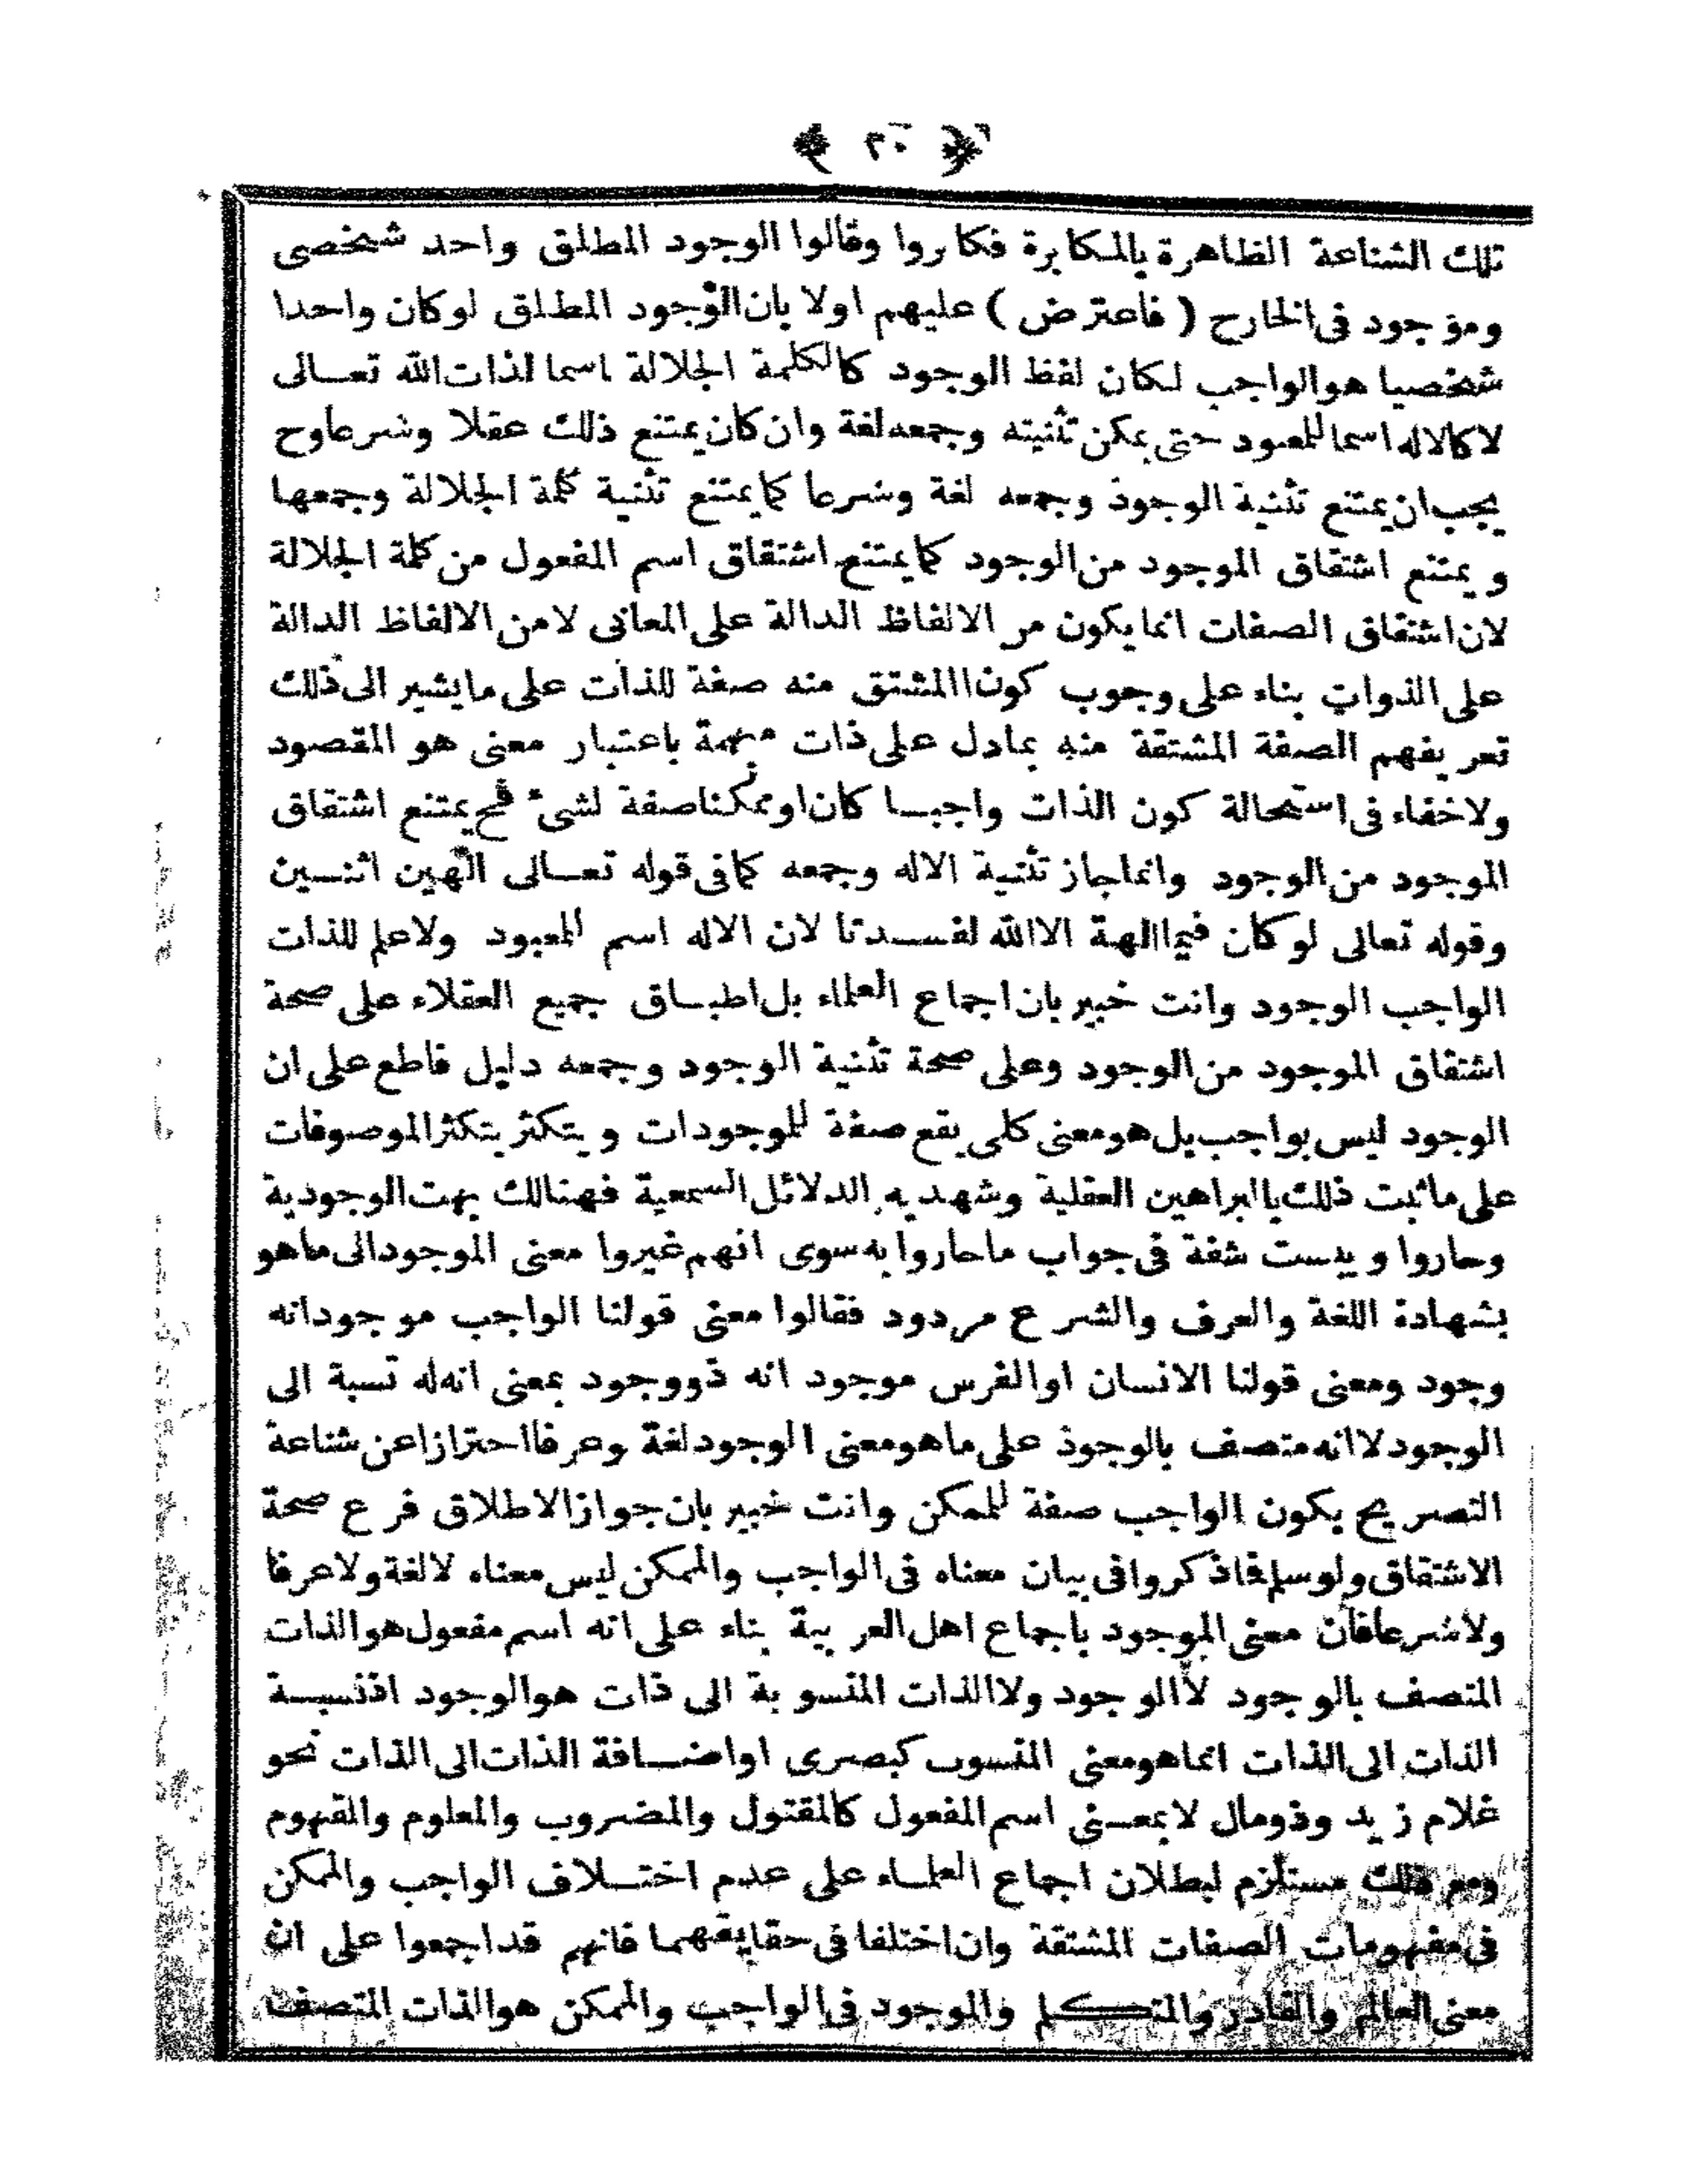 ﴿ ٢٠ ﴾
تلك الشناعة الظاهرة بالمكابرة فكابروا وقالوا الوجود المطلق واحد شخصى
وموجود فى الخارج ( فاعترض ) عليهم اولا بان الوجود المطلق لوكان واحدا
شخصيا هوالواجب لكان لفظ الوجود كالكلمة الجلالة اسما لذات الله تعالى
لا كالاله اسما للمعبود حتى يمكن تثنيته وجمعه لغة وان كان يمتنع ذلك عقلا وشرعا وح
يجب ان يمتنع تثنية الوجود وجمعه لغة وشرعا كما يمتنع تثنية كلمة الجلالة وجمعها
و يمتنع اشتقاق الموجود من الوجود كما يمتنع اشتقاق اسم المفعول من كلمة الجلالة
لان اشتقاق الصفات انما يكون من الالفاظ الدالة على المعانى لا من الالفاظ الدالة
على الذوات بناء على وجوب كون المشتق منه صفة للذات على ما يشير الى ذلك
تعريفهم الصفة المشتقة منه بمادل على ذات مبهمة باعتبار معنى هو المقصود
ولاخفاء فى استحالة كون الذات واجبا كان اوممكنا صفة لشئ فح يمتنع اشتقاق
الموجود من الوجود وانما جاز تثنية الاله وجمعه كما فى قوله تعالى الهين اثنين
وقوله تعالى لوكان فيهما الهة الا الله لفسدتا لان الاله اسم للمعبود ولاعلم للذات
الواجب الوجود وانت خبير بان اجماع العلماء بل اطباق جميع العقلاء على صحة
اشتقاق الموجود من الوجود وعلى صحة تثنية الوجود وجمعه دليل قاطع على ان
الوجود ليس بواجب بل هومعنى كلى يقع صفة للموجودات و يتكثر بتكثر الموصوفات
على ماثبت ذلك بالبراهين العقلية وشهد به الدلائل السمعية فهنالك بهت الوجودية
وحاروا و يبست شفة فى جواب ماحاروا به سوى انهم غيروا معنى الموجود الى ماهو
بشهادة اللغة والعرف والشرع مردود فقالوا معنى قولنا الواجب موجود انه
وجود ومعنى قولنا الانسان اوالفرس موجود انه ذووجود بمعنى انه له نسبة الى
الوجود لا انه متصف بالوجود على ماهو معنى الوجود لغة وعرفا احترازا عن شناعة
التصريح بكون الواجب صفة للممكن وانت خبير بان جواز الاطلاق فرع صحة
الاشتقاق ولو سلم فاذكروا فى بيان معناه فى الواجب والممكن ليس معناه لا لغة ولاعرفا
ولاشرعا فان معنى الموجود باجماع اهل العربية بناء على انه اسم مفعول هوالذات
المتصف بالوجود لا الوجود ولا الذات المنسوبة الى ذات هوالوجود اذ نسبة
الذات الى الذات انما هومعنى المنسوب كبصرى اواضافة الذات الى الذات نحو
غلام زيد وذومال لا بمعنى اسم المفعول كالمقتول والمضروب والمعلوم والمفهوم
ومع ذلك مستلزم لبطلان اجماع العلماء على عدم اختلاف الواجب والممكن
فى مفهومات الصفات المشتقة وان اختلفا فى حقايقهما فانهم قد اجمعوا على ان
معنى العالم والقادر والمتكلم والموجود فى الواجب والممكن هوالذات المتصف